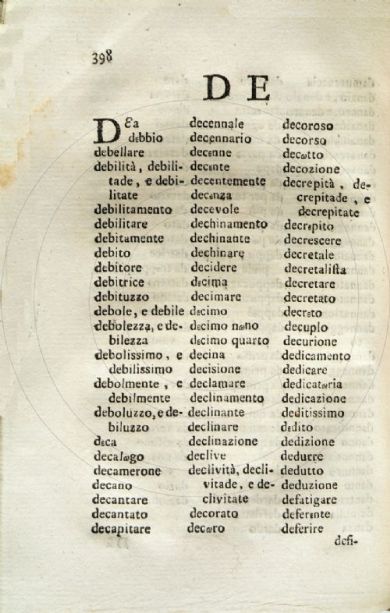 398
D E
DƐa
dεbbio
debellare
debilità, debili-
tade, e debi-
litate
debilitamento
debilitare
debitamente
debito
debitore
debitrice
debituzzo
debole, e debile
debolezza, e de-
bilezza
debolissimo, e
debilissimo
debolmente, e
debilmente
deboluzzo, e de-
biluzzo
dεca
decalωgo
decamerone
decano
decantare
decantato
decapitare
decennale
decennario
decεnne
decεnte
decentemente
decεnza
decevole
dechinamento
dechinante
dechinare
decidere
dεcima
decimare
dεcimo
dεcimo nωno
dεcimo quarto
decina
decisione
declamare
declinamento
declinante
declinare
declinazione
declive
declività, decli-
vitade, e de-
clivitate
decorato
decωro
decoroso
decorso
decωtto
decozione
decrepità, de-
crepitade, e
decrepitate
decrεpito
decrescere
decretale
decretaliſta
decretare
decretato
decrεto
decuplo
decurione
dedicamento
dedicare
dedicatωria
dedicazione
deditissimo
dεdito
dedizione
dedurre
dedutto
deduzione
defatigare
deferεnte
deferire
defi-